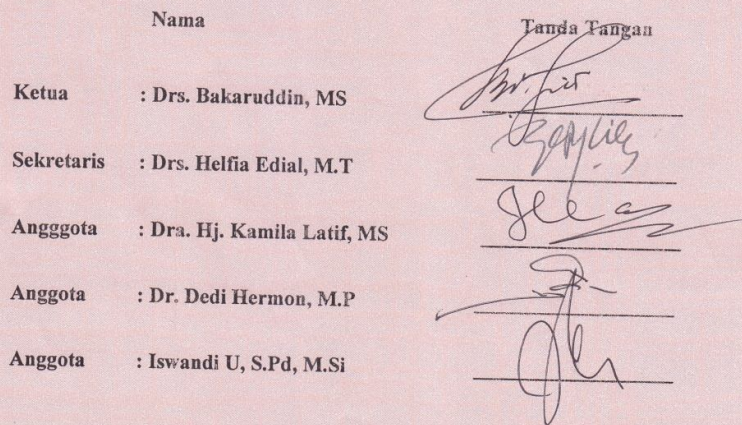 Nama Tanda Tangan
Ketua : Drs. Bakaruddin, MS
Sekretaris : Drs. Helfia Edial, M.T
Angggota : Dra. Hj. Kamila Latif, MS
Anggota : Dr. Dedi Hermon, M.P
Anggota : Iswandi U, S.Pd, M.Si